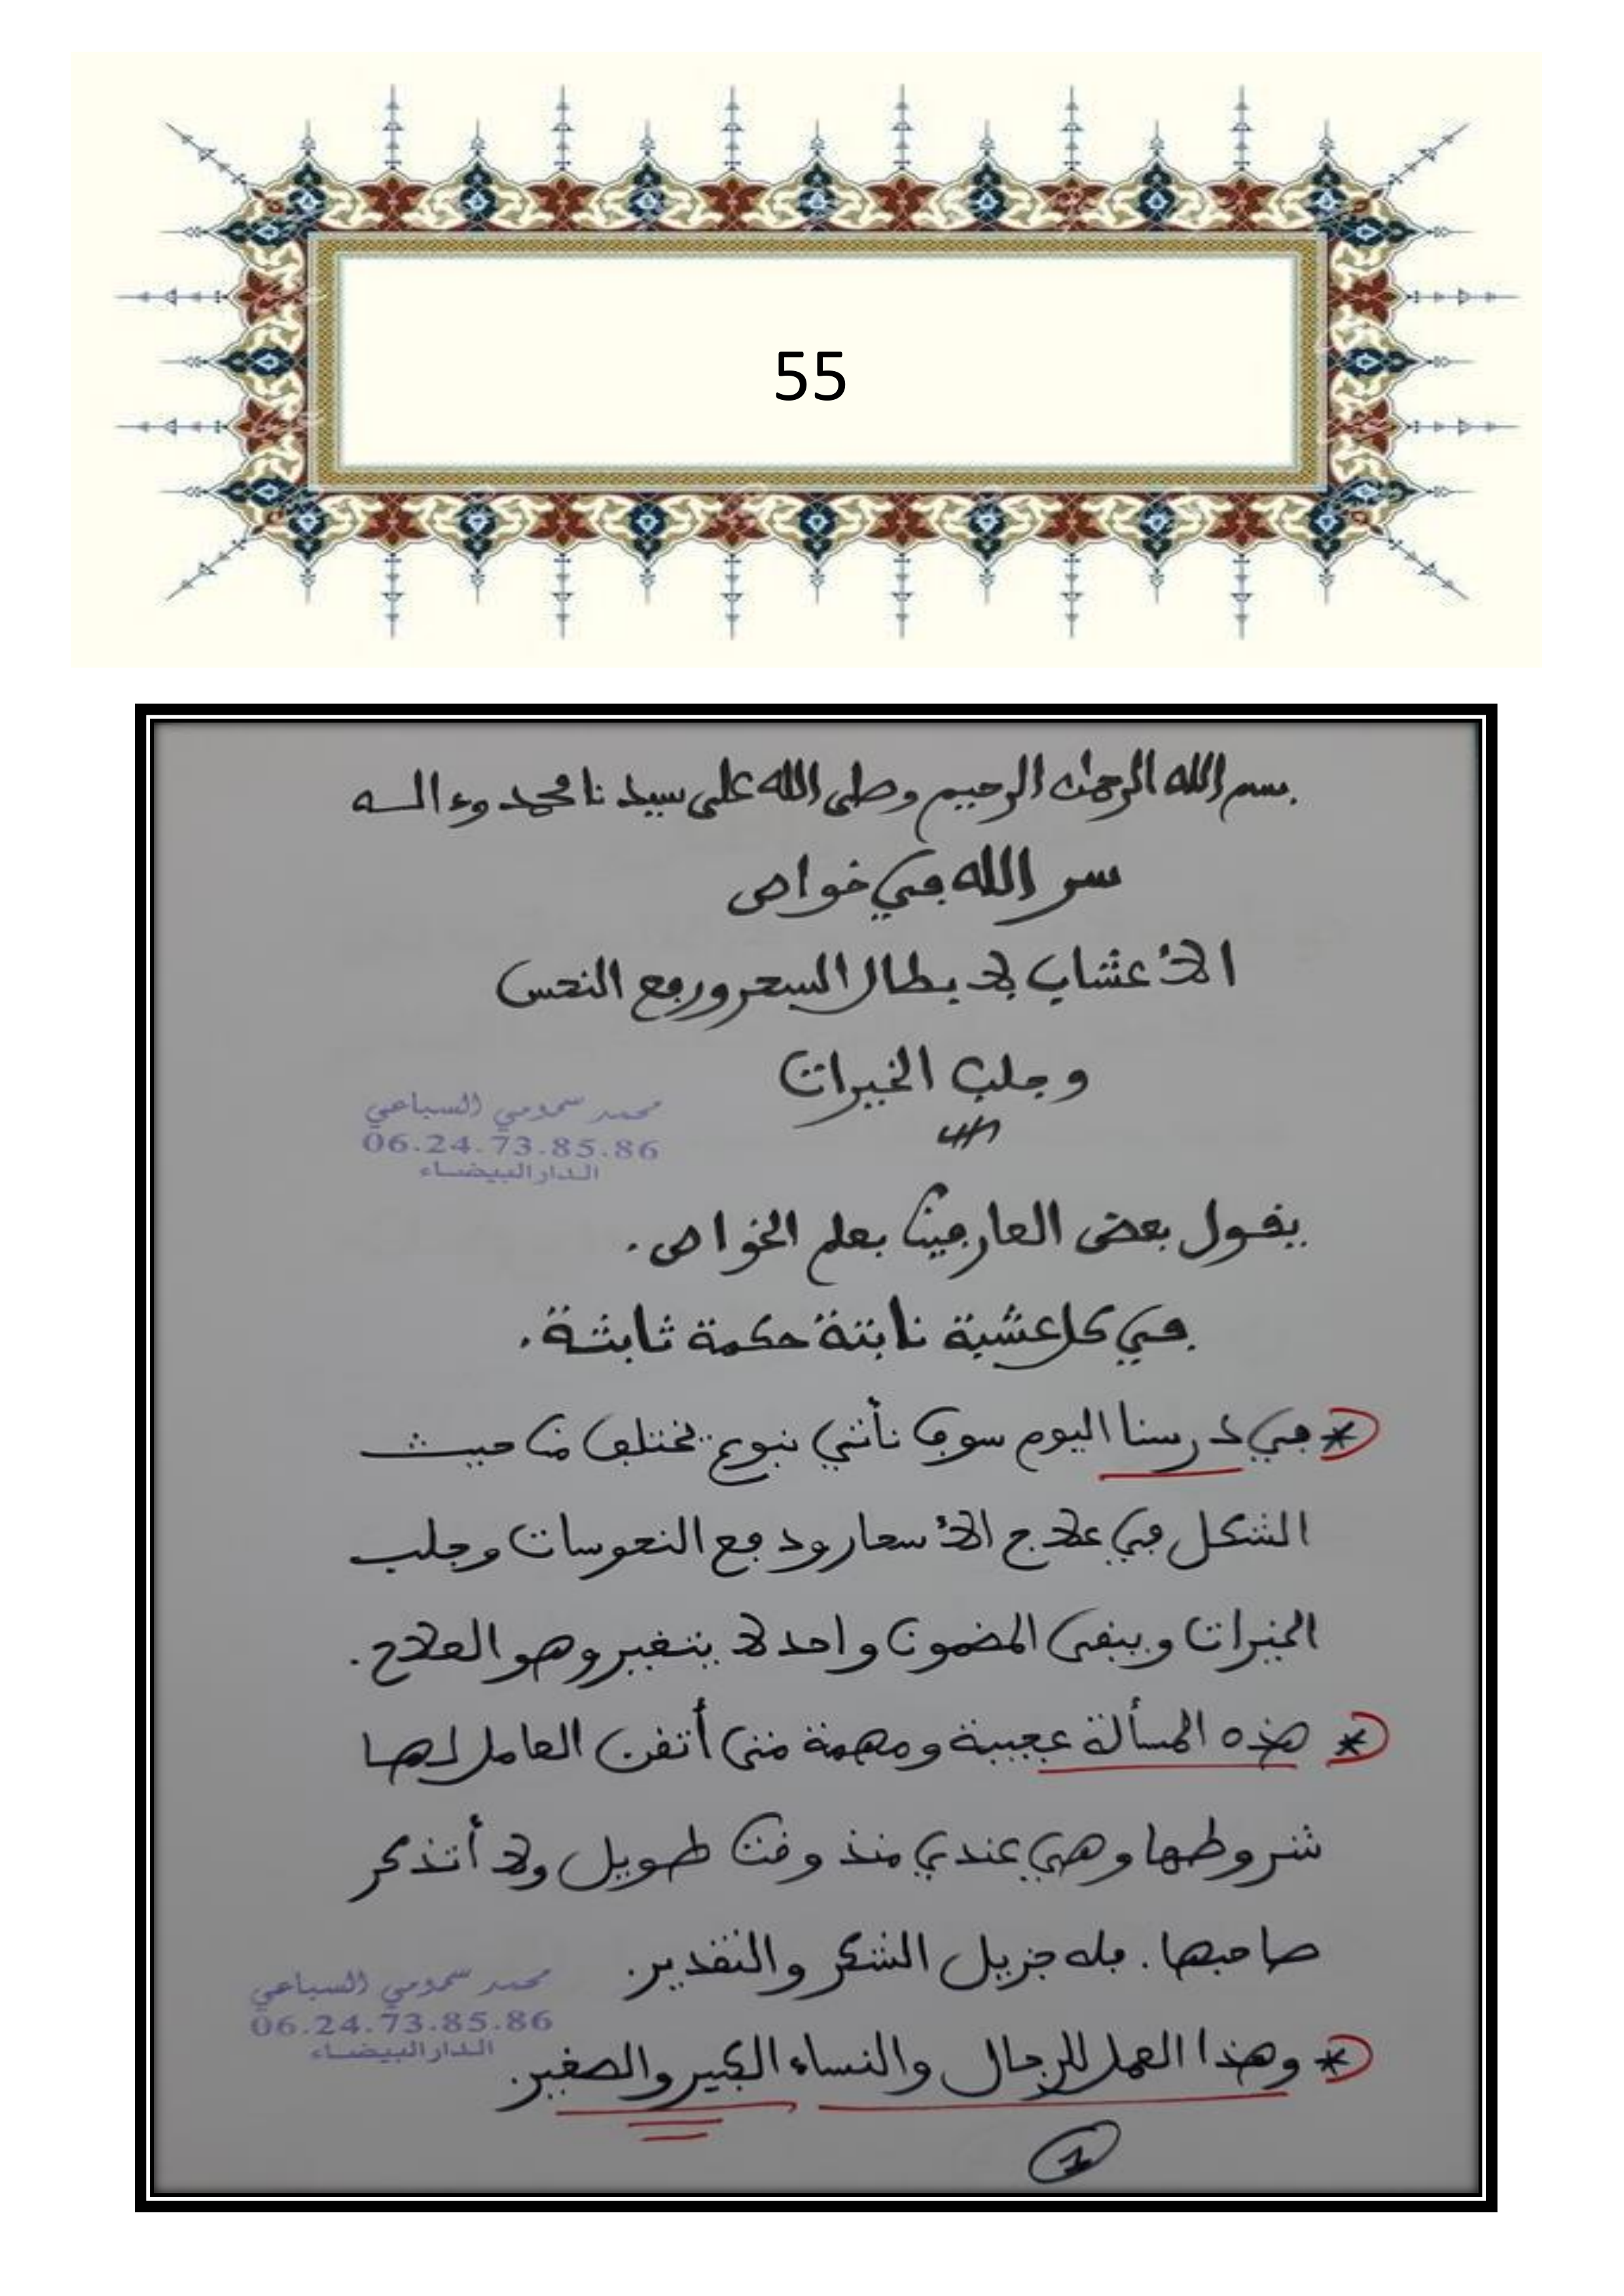 55
بسم الله الرحمن الرحيم وصلى الله على سيدنا محمد وءاله
سر الله في خواص
الأعشاب لإبطال السحر ورفع النحس
وجلب الخيرات
محمد سمومي السباعي
06.24.73.85.86
الدار البيضاء
يقول بعض العارفين بعلم الخواص.
في كل عشبة نابتة حكمة ثابتة.
* في درسنا اليوم سوف نأتي بنوع يختلف من حيث
الشكل في علاج الأسحار ودفع النحوسات وجلب
الخيرات ويبقى المضمون واحد لا يتغير وهو العلاج.
* هذه المسألة عجيبة ومهمة متى أتقن العامل لها
شروطها وهي عندي منذ وقت طويل ولا أتذكر
صاحبها. فله جزيل الشكر والتقدير.
محمد سمومي السباعي
06.24.73.85.86
الدار البيضاء
* وهذا العمل للرجال والنساء الكبير والصغير.
1